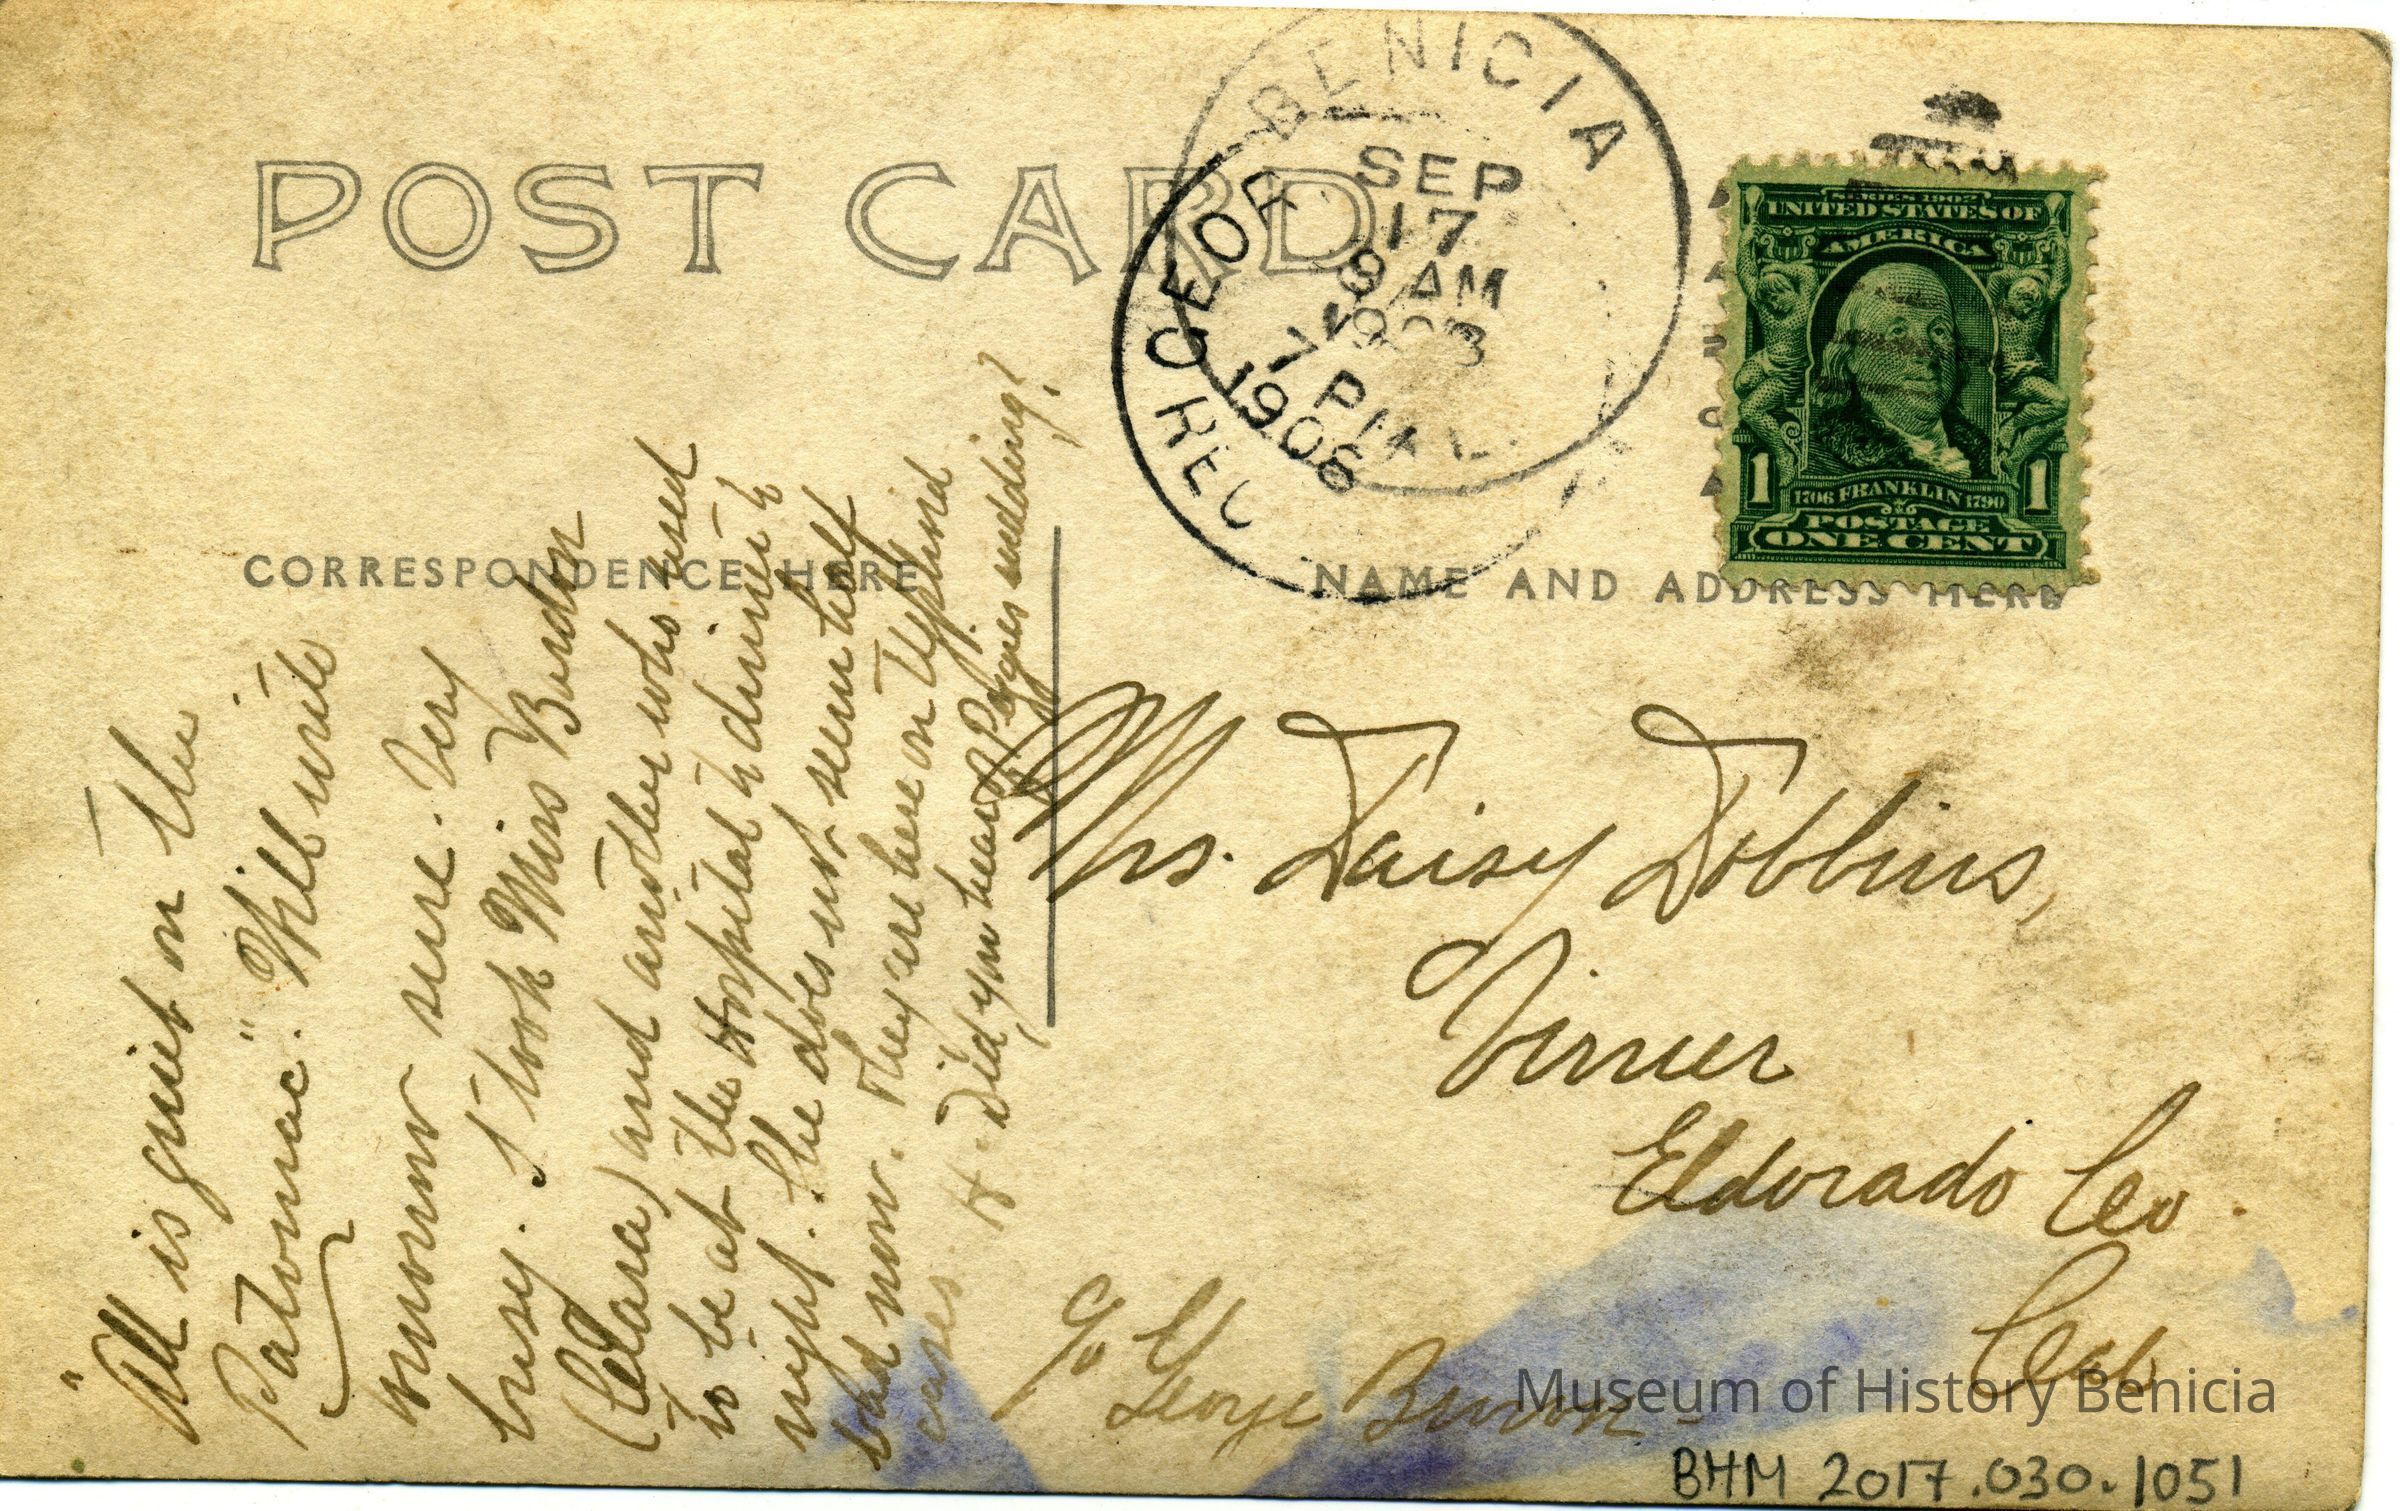 POST CARD
BENICIA
SEP
17
9 AM
1908
REC'D
7 PM
1906
SERIES 1902
UNITED STATES OF
AMERICA
1 1706 FRANKLIN 1790 1
POSTAGE
ONE CENT
CORRESPONDENCE HERE
NAME AND ADDRESS HERE
"All is quiet on the
Patomac". Will write
tomorrow sure. Very
busy. I took Miss
(Clara) and another who used
to be at the Hospital to dinner to
night. She does not seem half
bad now. They are here on Typhoid
cases. H. Did you hear of Pogues wedding?
Mrs. Daisy Dobbins,
Virner
Eldorado Co.
Cal
c/o George
Museum of History Benicia
BHM 2017.030.1051